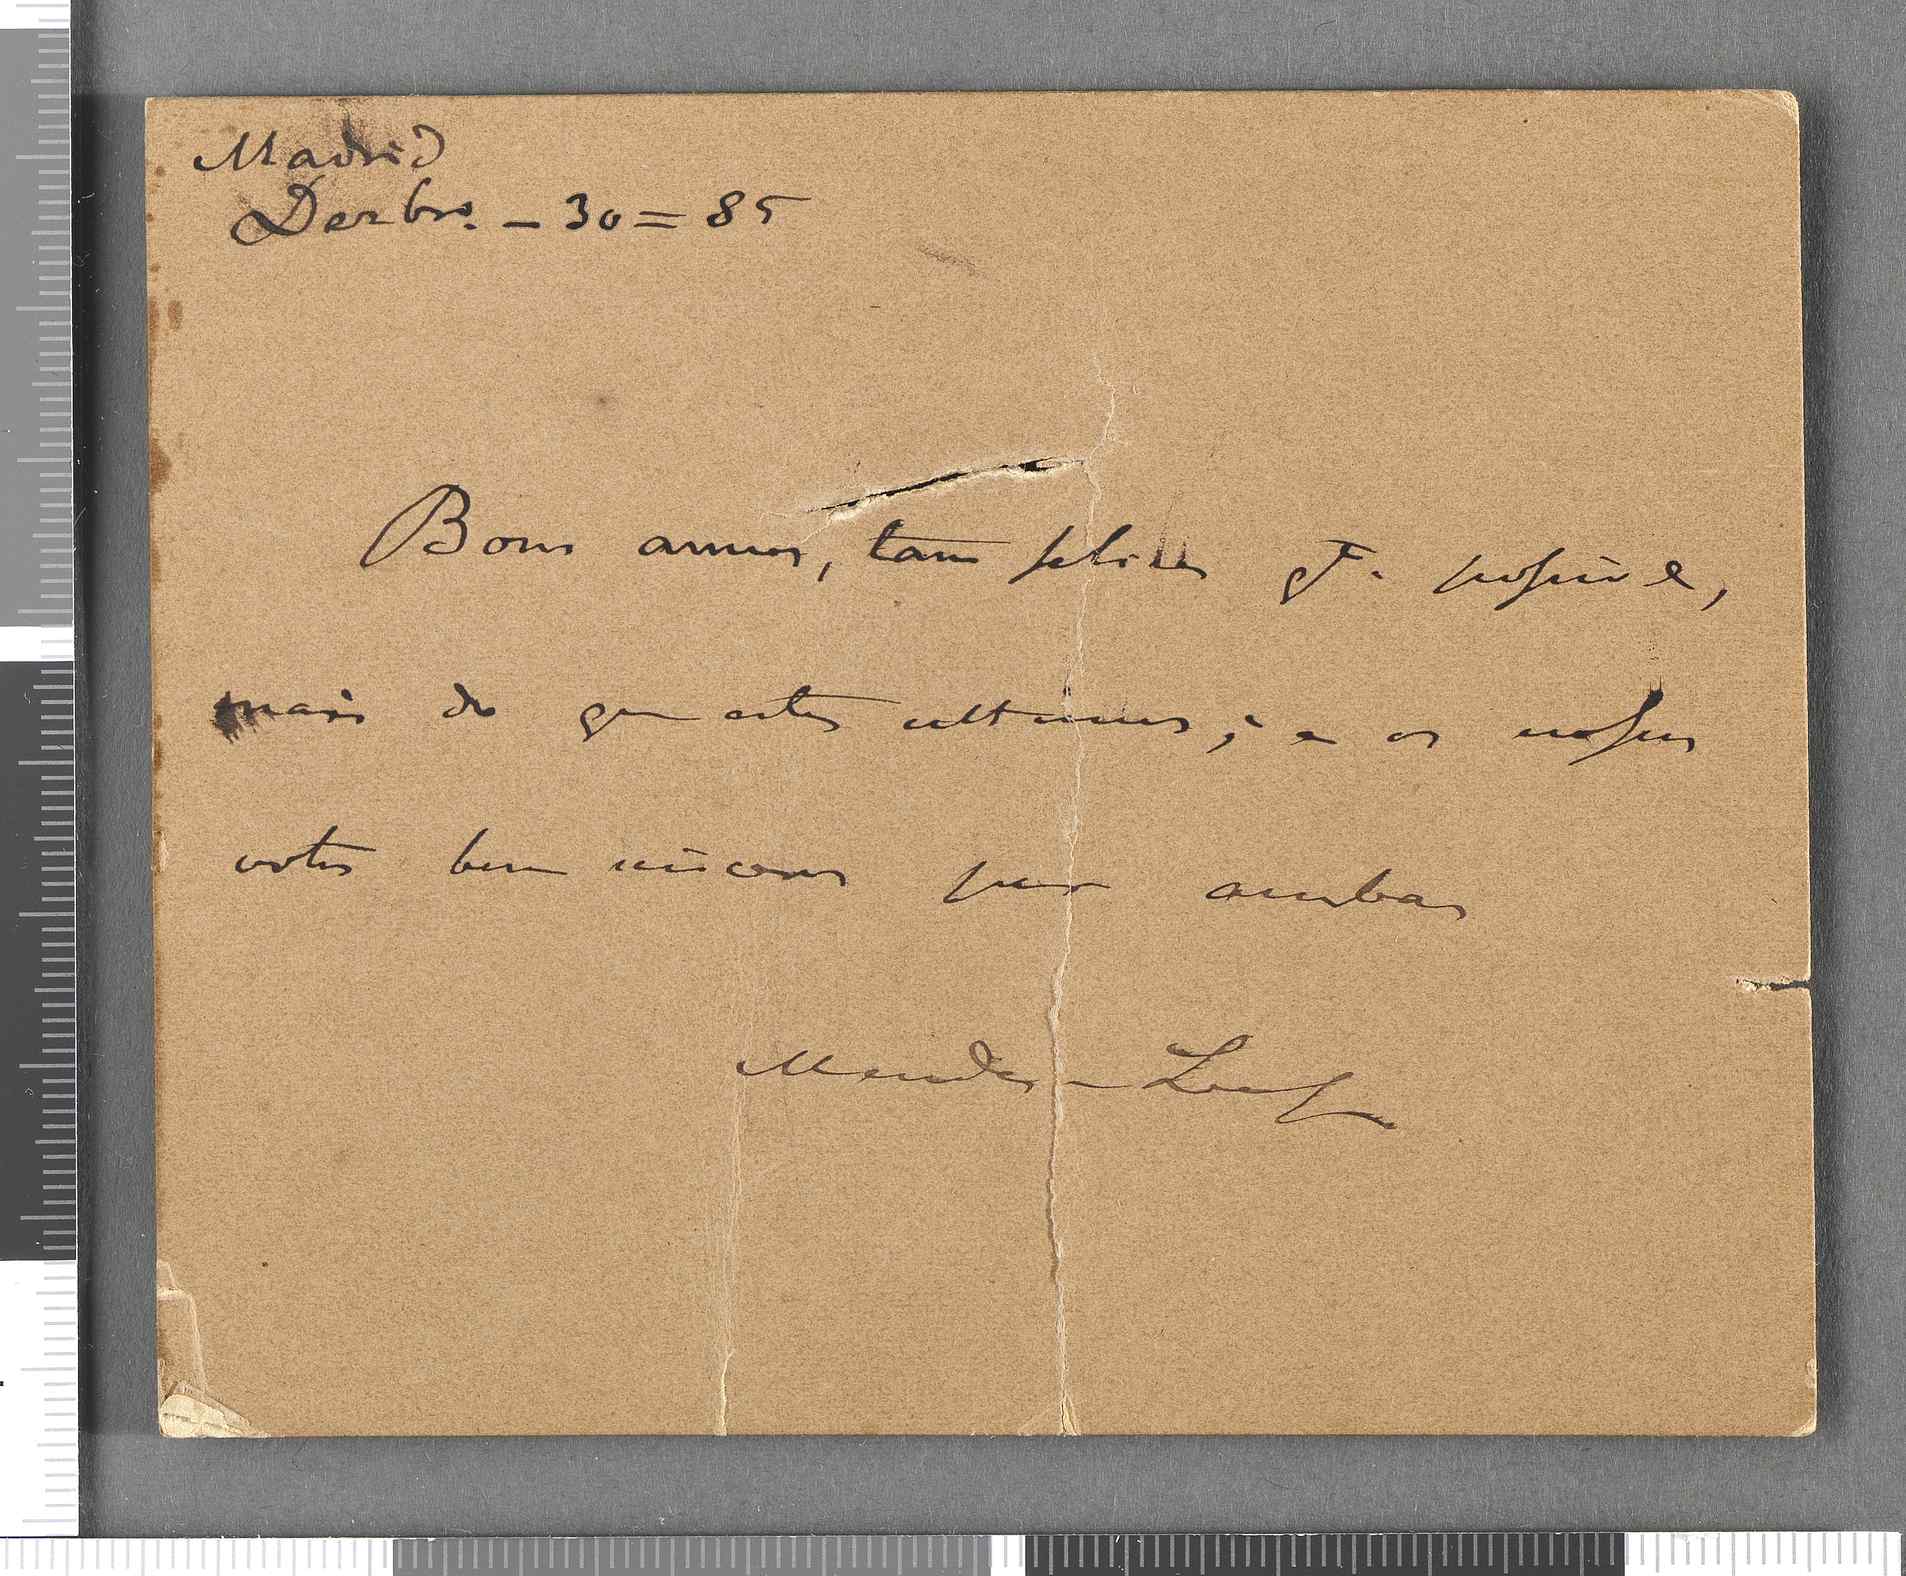 Madrid
Dezbro. – 30 = 85
Bons annos, tam felizes qto. possivel,
mais do que estes ultimos; e os nossos
votos bem sinceros por ambas
Mendes – Leal